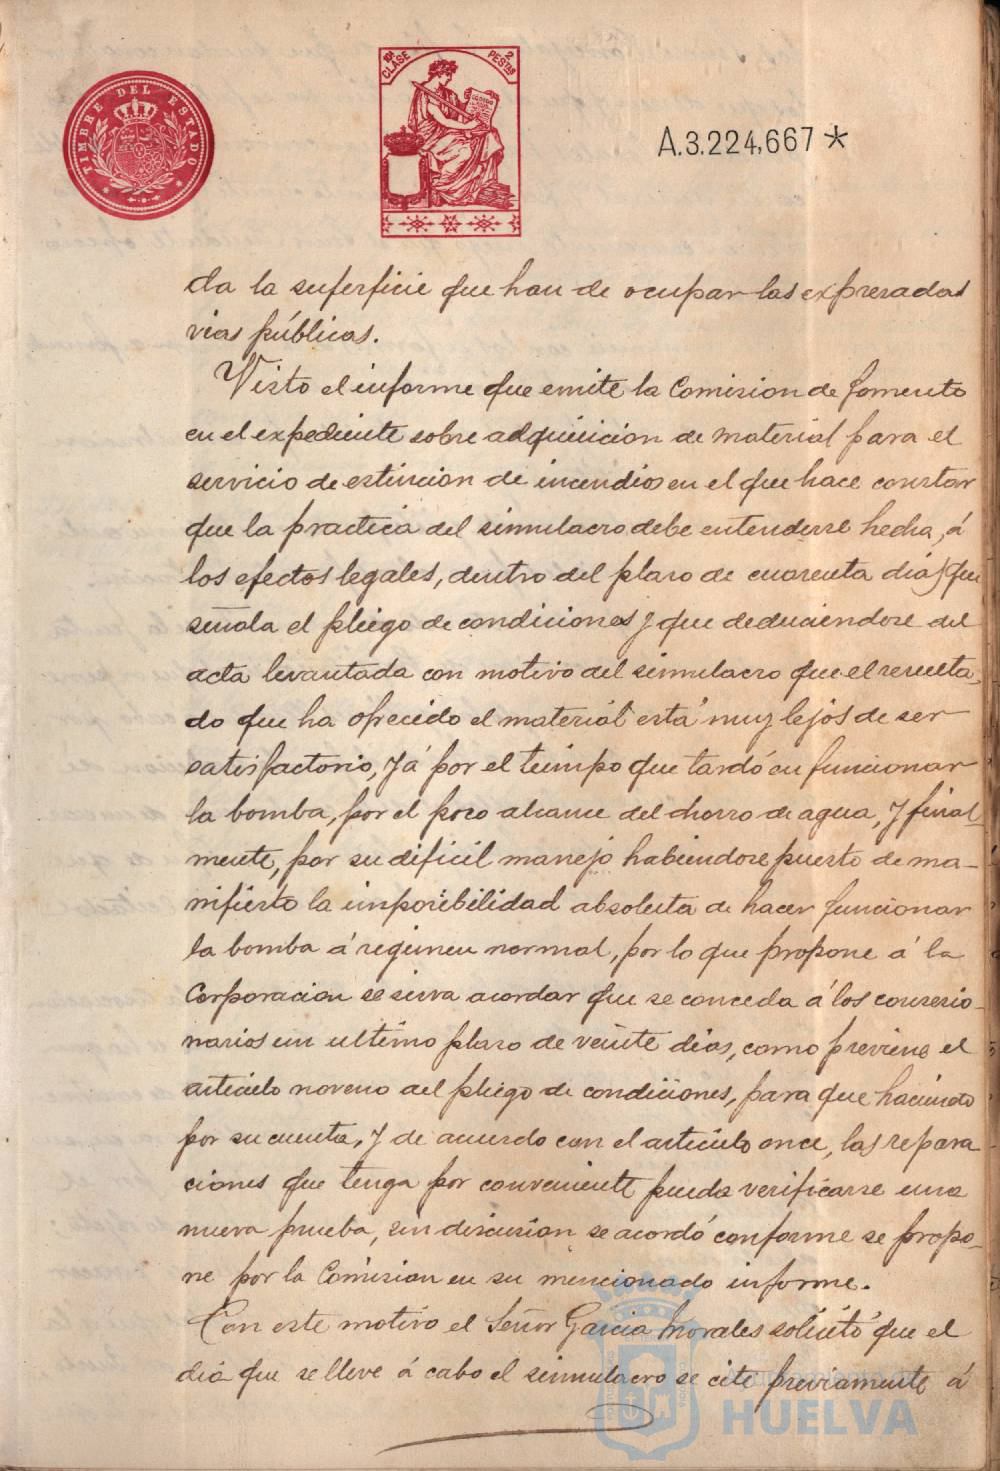 TIMBRE DEL ESTADO
10ª CLASE
2 PESTAS
A.3.224,667*
da la superficie que han de ocupar las expresadas
vias públicas.
Visto el informe que emite la Comision de Fomento
en el expediente sobre adquisicion de material para el
servicio de estincion de incendios en el que hace constar
que la practica del simulacro debe entenderse hecha, á
los efectos legales, dentro del plaso de cuarenta dias que
señala el pliego de condiciones y que deduciendose del
acta levantada con motivo del simulacro que el resulta
do que ha ofrecido el material está muy lejos de ser
satisfactorio, yá por el tiempo que tardó en funcionar
la bomba, por el poco alcance del chorro de agua, y final-
mente, por su dificil manejo habiendose puesto de ma-
nifiesto la imposibilidad absoluta de hacer funcionar
la bomba á regimen normal, por lo que propone á la
Corporacion se sirva acordar que se conceda á los concesio-
narios un ultimo plaso de veinte dias, como previene el
articulo noveno del pliego de condiciones, para que haciendo
por su cuenta, y de acuerdo con el articulo once, las repara
ciones que tenga por conveniente pueda verificarse una
nueva prueba, sin discusion se acordó conforme se propo-
ne por la Comision en su mencionado informe.
Con este motivo el Señor Garcia Morales solicitó que el
dia que se lleve á cabo el simulacro se cite previamente á
Ayuntamiento de
HUELVA